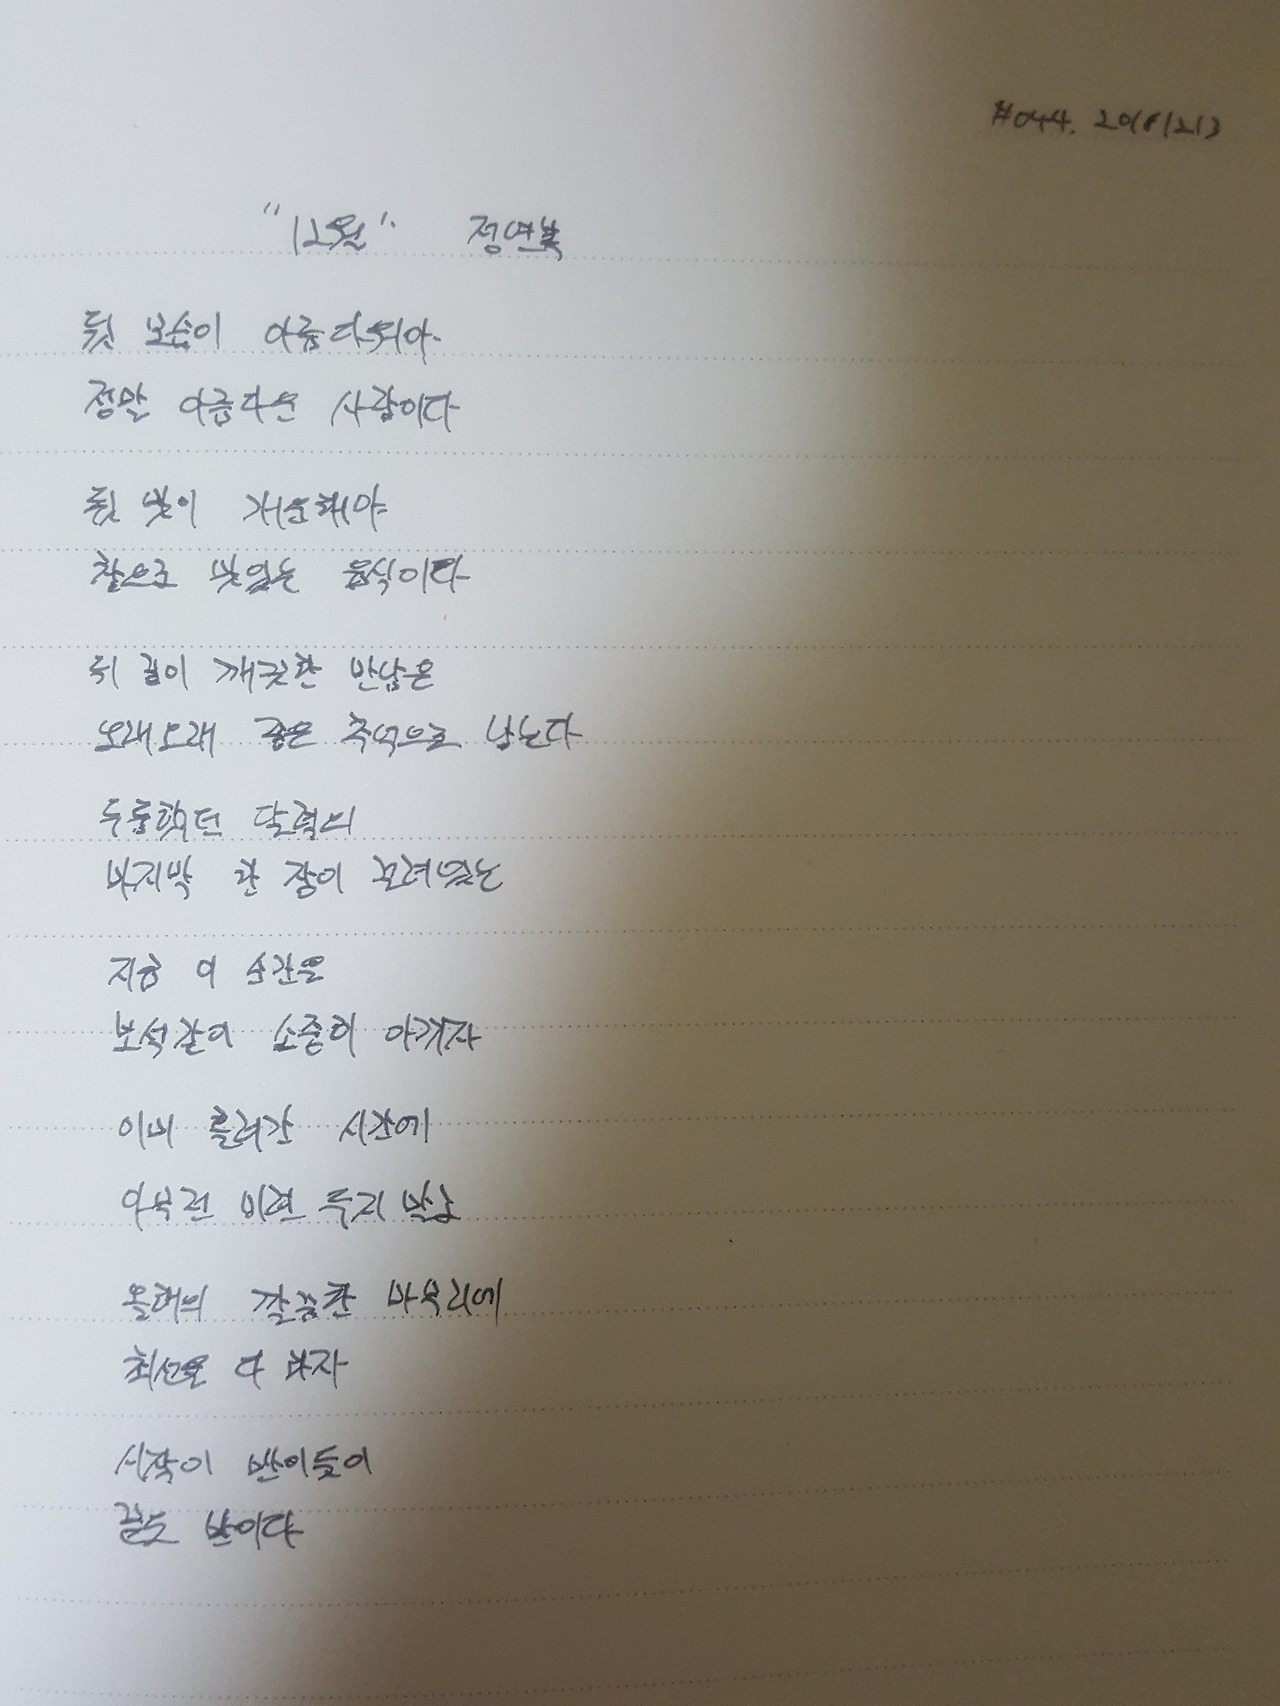 #044. 20181213
"12월" 정연복
뒷 모습이 아름다워야
정말 아름다운 사람이다
뒷 맛이 개운해야
참으로 맛있는 음식이다
뒤 끝이 깨끗한 만남은
오래오래 좋은 추억으로 남는다
두툼했던 달력의
마지막 한 장이 걸려있는
지금 이 순간을
보석같이 소중히 아끼자
이미 흘러간 시간에
아무런 미련 두지 말고
올해의 깔끔한 마무리에
최선을 다 하자
시작이 반이듯이
끝도 반이다